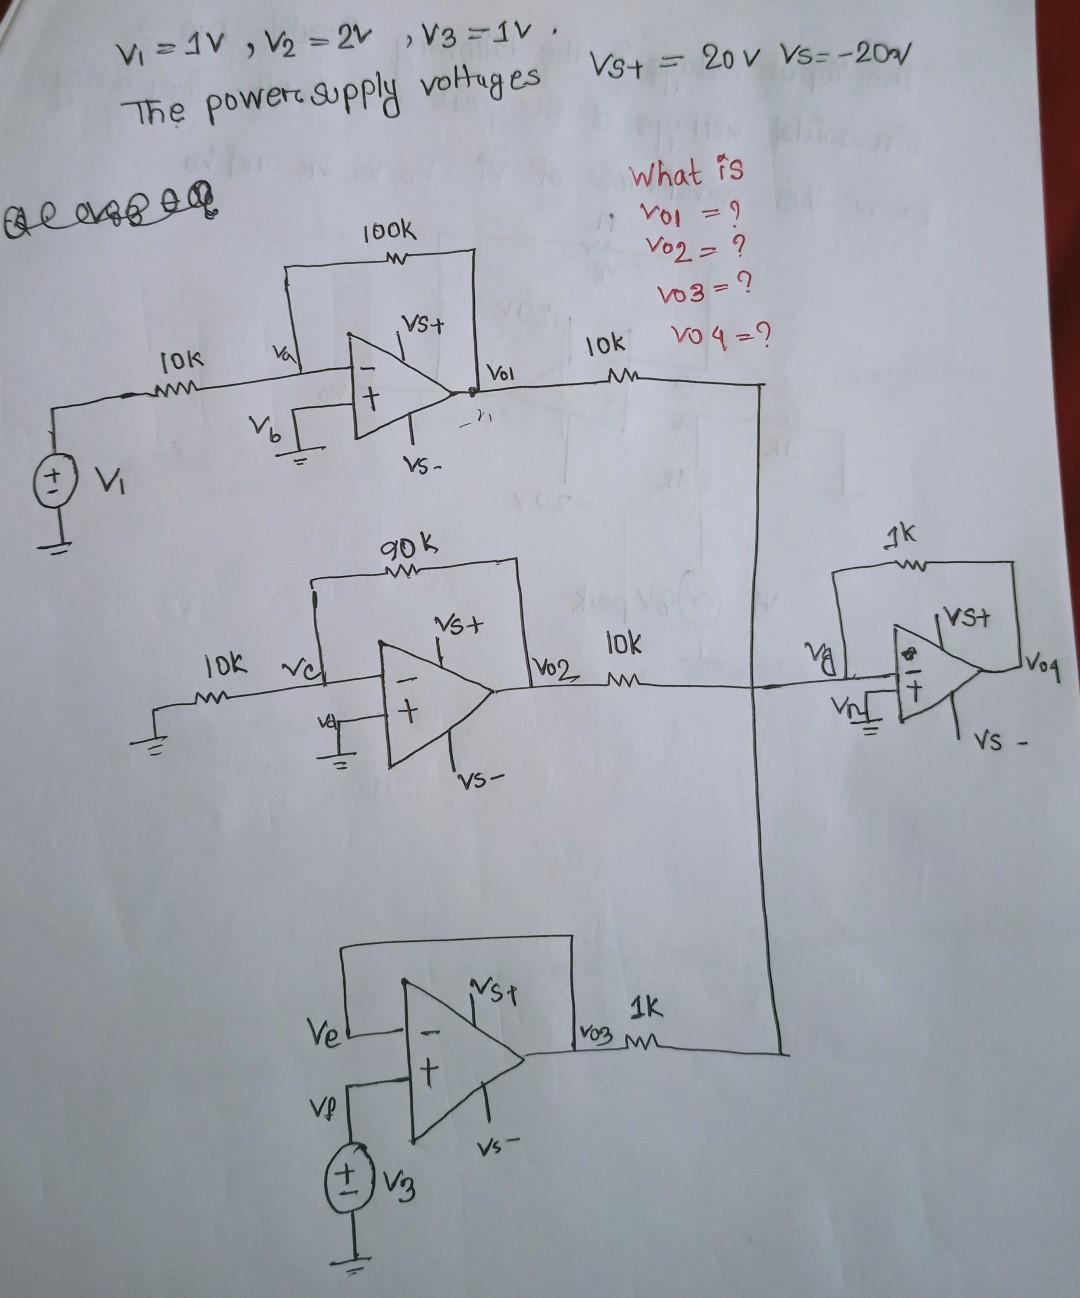 V1 = 1V , V2 = 2V , V3 = 1V .
VS+ = 20V VS = -20V
The power supply voltages
What is
Vo1 = ?
Vo2 = ?
Vo3 = ?
Vo4 = ?
100k
VS+
10k
Va
Vo1
10k
-
+
Vb
VS-
+
-
V1
90k
1k
VS+
10k
Vc
-
Vo2
10k
Vd
+
VS-
VS+
Vg
-
Vo4
Vn
+
VS -
VS+
Ve
-
Vo3
1k
+
Vf
VS-
+
-
V3